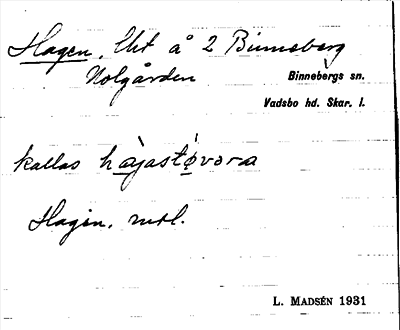 Hagen, lht å 2 Binneberg
Nolgården
Binnebergs sn.
Vadsbo hd. Skar. l.
kallas hàjastǿvəra
Hagen, mtl.
L. MADSÉN 1931